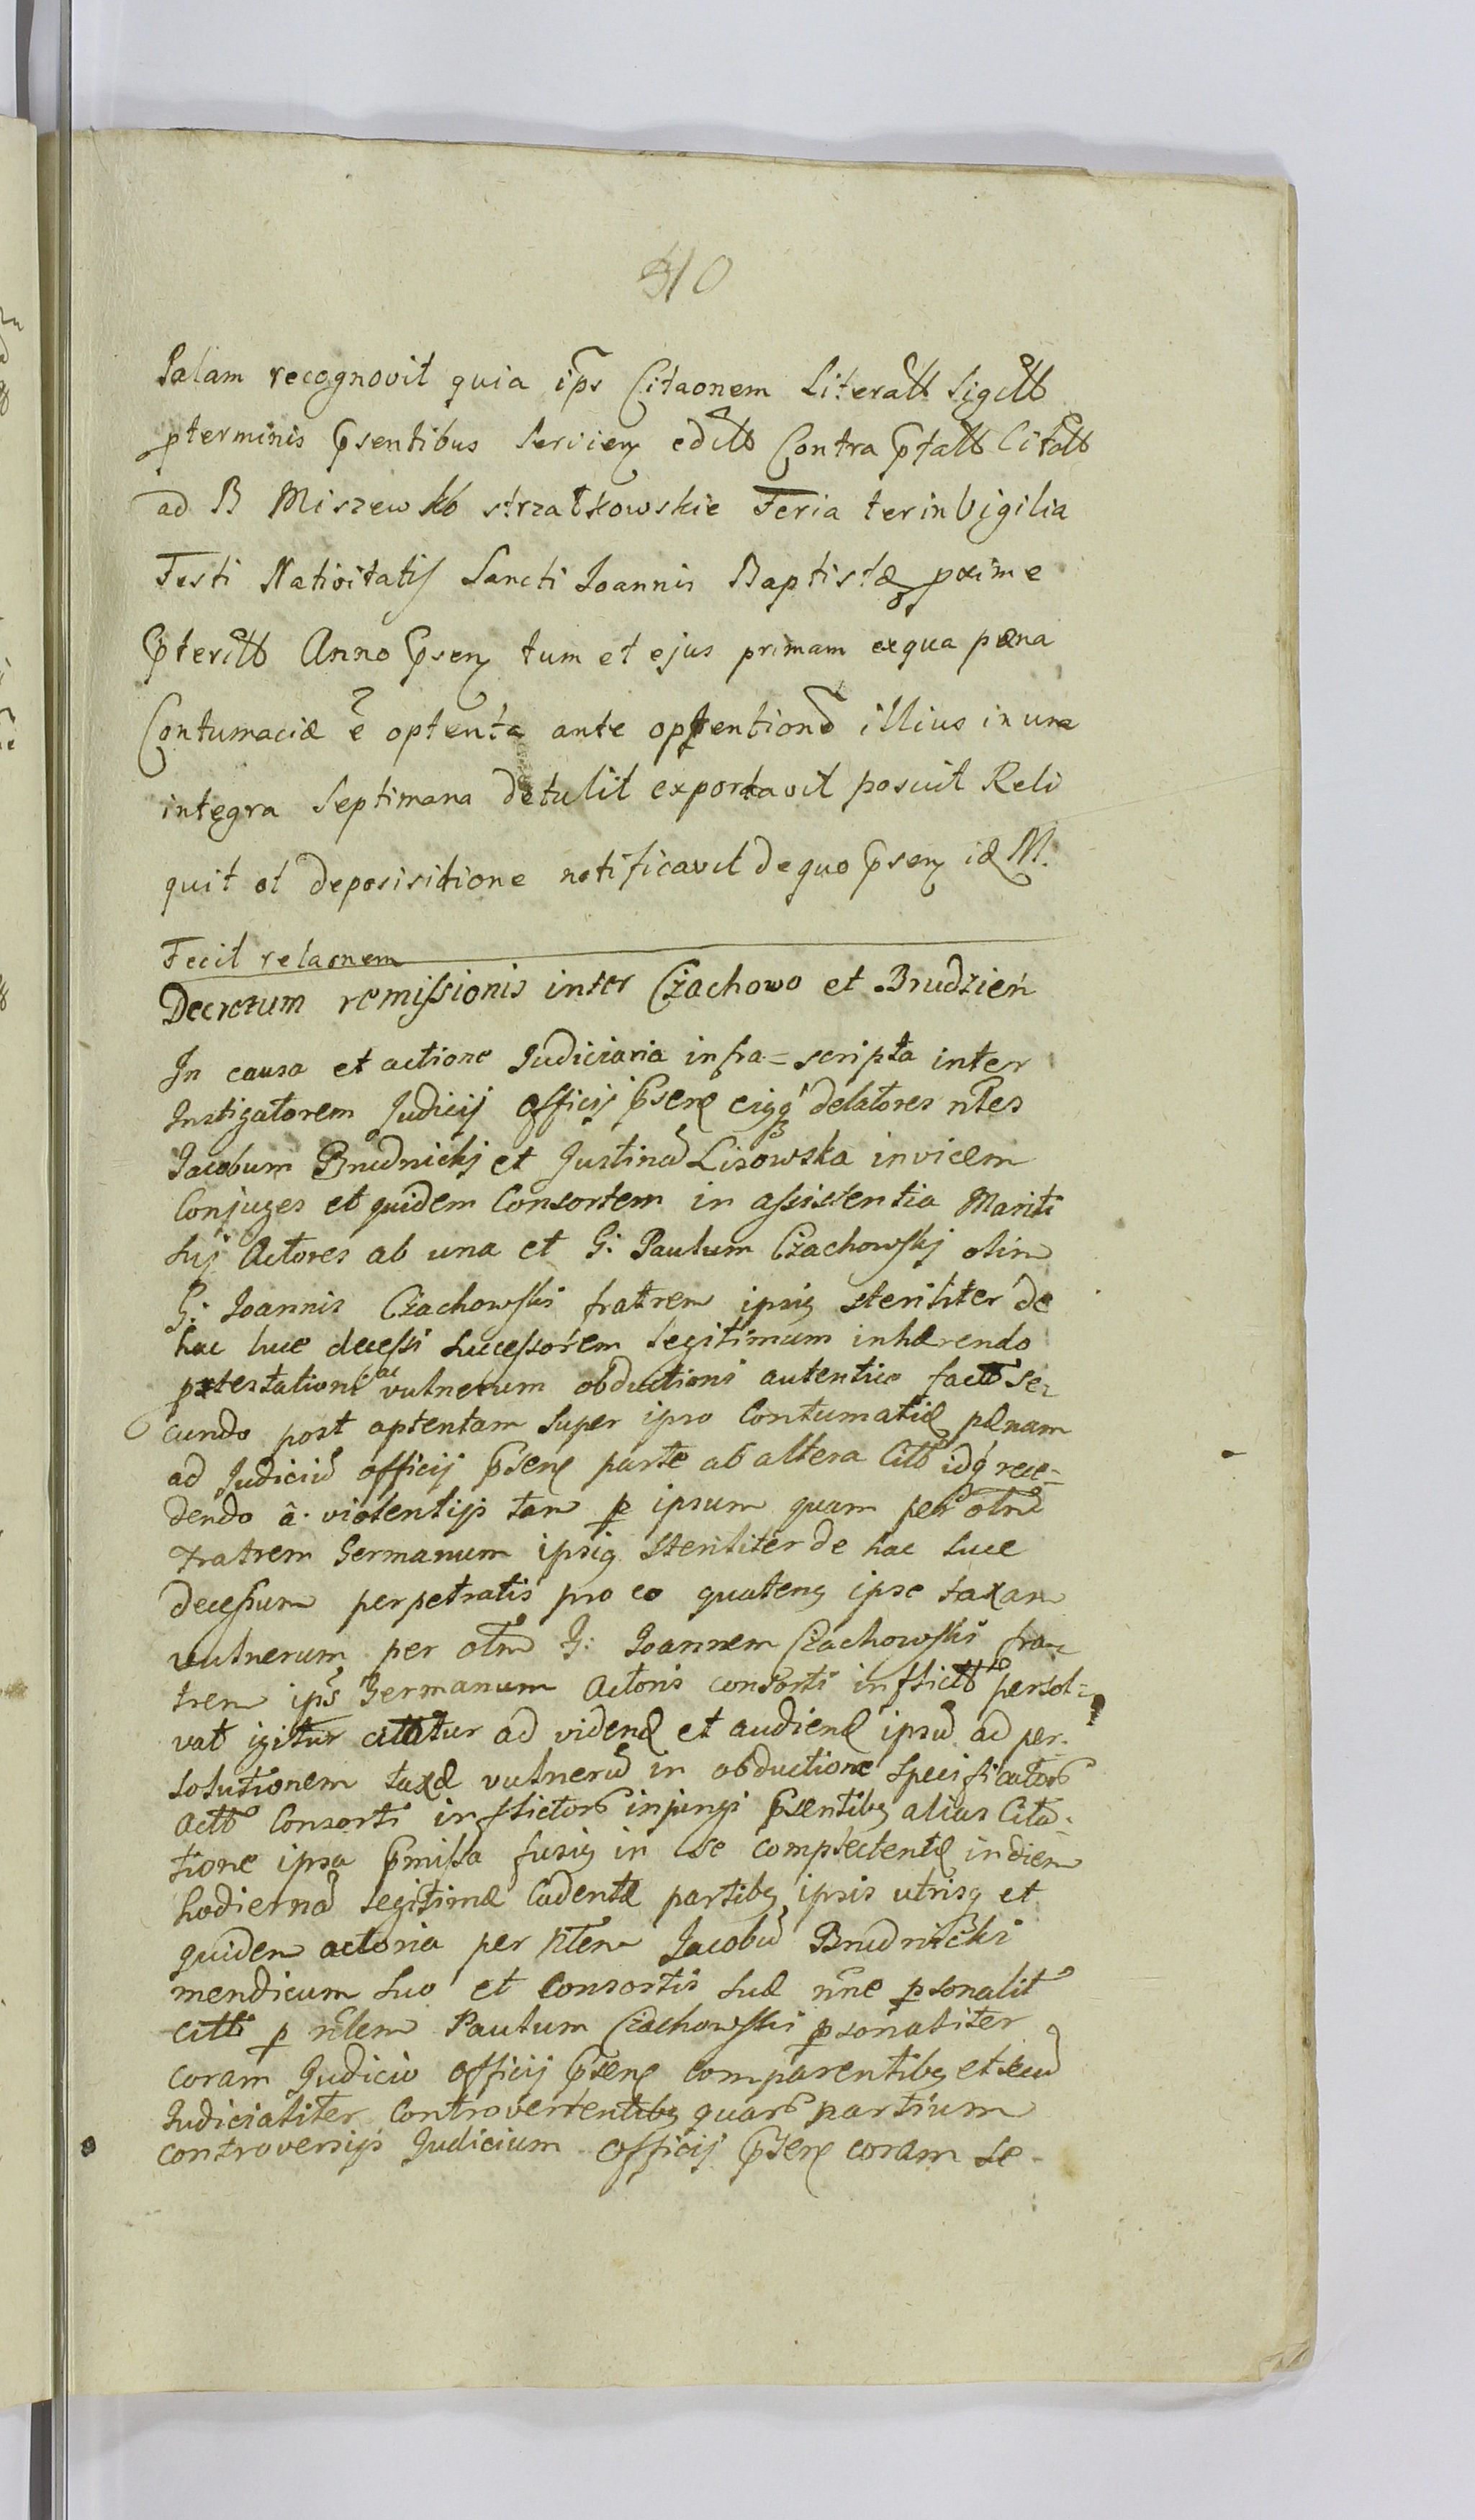 510
Palam recognovit quia ips Citaonem Literatt Sigill
pterminis psentibus Servien edill Contra ptatt Citatt
ad B Miszewko strzałkowskie Feria ter in Vigilia
Festi Nativitatis Sancti Joannis Baptistæ pxime
pteritt Anno psen tum et ejus primam ex qua pæna
Contumaciæ e optenta ante optentione illius in una
integra Septimana detulit exportavit posuit Reli
quit et deposisitione notificavit de quo psen id M.
Fecit relaonem
Decretum remissionis inter Czachowo et Brudzień
In causa et actione Judiciaria infra=scripta inter
Instigatorem Judicij officij psen eigq delatores ntes
Jacobum Brudnickj et Justina Lisowska invicem
Conjuges et quidem Consortem in assistentia Mariti
sui Actores ab una et G: Paulum Czachowskj olim
G: Joannis Czachowski fratrem ipsig steriliter de
hac luce decessi successorem legitimum inhærendo
ptestationi ac vulnerum obductioni autentice fact se=
cundo post optentam super ipso Contumatiæ pænam
ad Judiciu officij psen parte ab altera Citt idq rece=
dendo â violentijs tam p ipsum quam per olm
Fratrem Germanum ipsig Steriliter de hac luce
decessum perpetratis pro eo quateng ipse taxam
vulnerum per olm G: Joannem Czachowski fra=
trem ips Germanum Actoris consorti inflictt persol=
vat igitur citatur ad viden et audien ipsu ad per=
solutionem taxæ vulneru in obductione specificator
Actt Consorti inflictor injungi psentibg alias Cita=
tione ipsa pmissa fusig in se complectente in diem
hodierna legitime Cadente partibg ipsis utrisq et
quidem actoria per ntem Jacobu Brudnicki
mendicum suo et Consortis suæ nne psonalit
Citt p nlem Paulum Czachowski psonaliter
coram Judicio officij psen comparentibg et secu
Judicialiter Controvertentibg quar partium
controversijs Judicium officij psen coram se